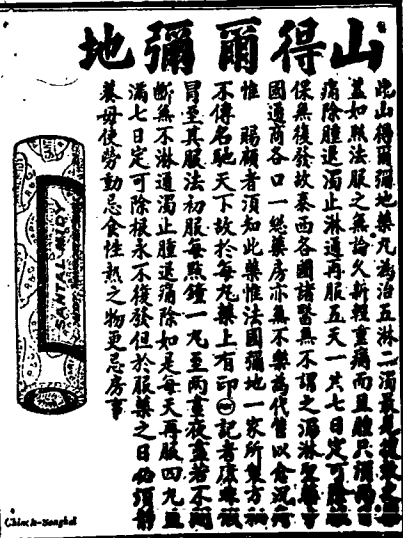 山得爾彌地
此山得爾彌地藥丸為治五淋二濁最
蓋如照法服之無論久新輕重痛而且腫只須兩日
痛除腫退濁止淋通再服五天一共七日定可除
保無復發故泰西各國諸醫無不謂之濁淋聖藥
國通商各口一總藥房亦無不樂為代售以
惟 賜顧者須知此藥惟法國彌地一家所製方
不傳名馳天下故於每丸藥上有印 記者
冒至其服法初服每點鐘一丸至兩晝夜
斷無不淋通濁止腫退痛除如是每天再服四丸
滿七日定可除根永不復發但於服藥之日必須
養毋使勞動忌食性熱之物更忌房事
SANTAL MIDY